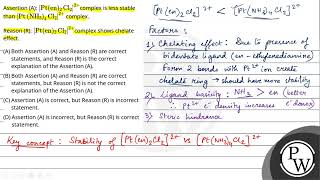 Assertion (A): [Pt(en)₂Cl₂]²⁺ complex is less stable
than [Pt(NH₃)₄Cl₂]²⁺ complex.
Reason (R): [Pt(en)₂Cl₂]²⁺complex shows chelate
effect.
(A) Both Assertion (A) and Reason (R) are the correct
statements, and Reason (R) is the correct
explanation of the Assertion (A).
(B) Both Assertion (A) and Reason (R) are correct
statements, but Reason (R) is not the correct
explanation of the Assertion (A).
(C) Assertion (A) is correct, but Reason (R) is incorrect
statement.
(D) Assertion (A) is incorrect, but Reason (R) is correct
statement.
[Pt(en)₂Cl₂]²⁺ < [Pt(NH₃)₄Cl₂]²⁺
Factors :
1) Chelating effect : Due to presence of
bidentate ligand (en - ethylenediamine)
Form 2 bonds with Pt²⁺ ion create
chelate ring → should have more stability
2) Ligand basicity : NH₃ > en
∴ Pt²⁺ e⁻ density increases (e⁻ donor)
3) Steric hindrance
Key concept : Stability of [Pt(en)₂Cl₂]²⁺ vs [Pt(NH₃)₄Cl₂]²⁺
PW